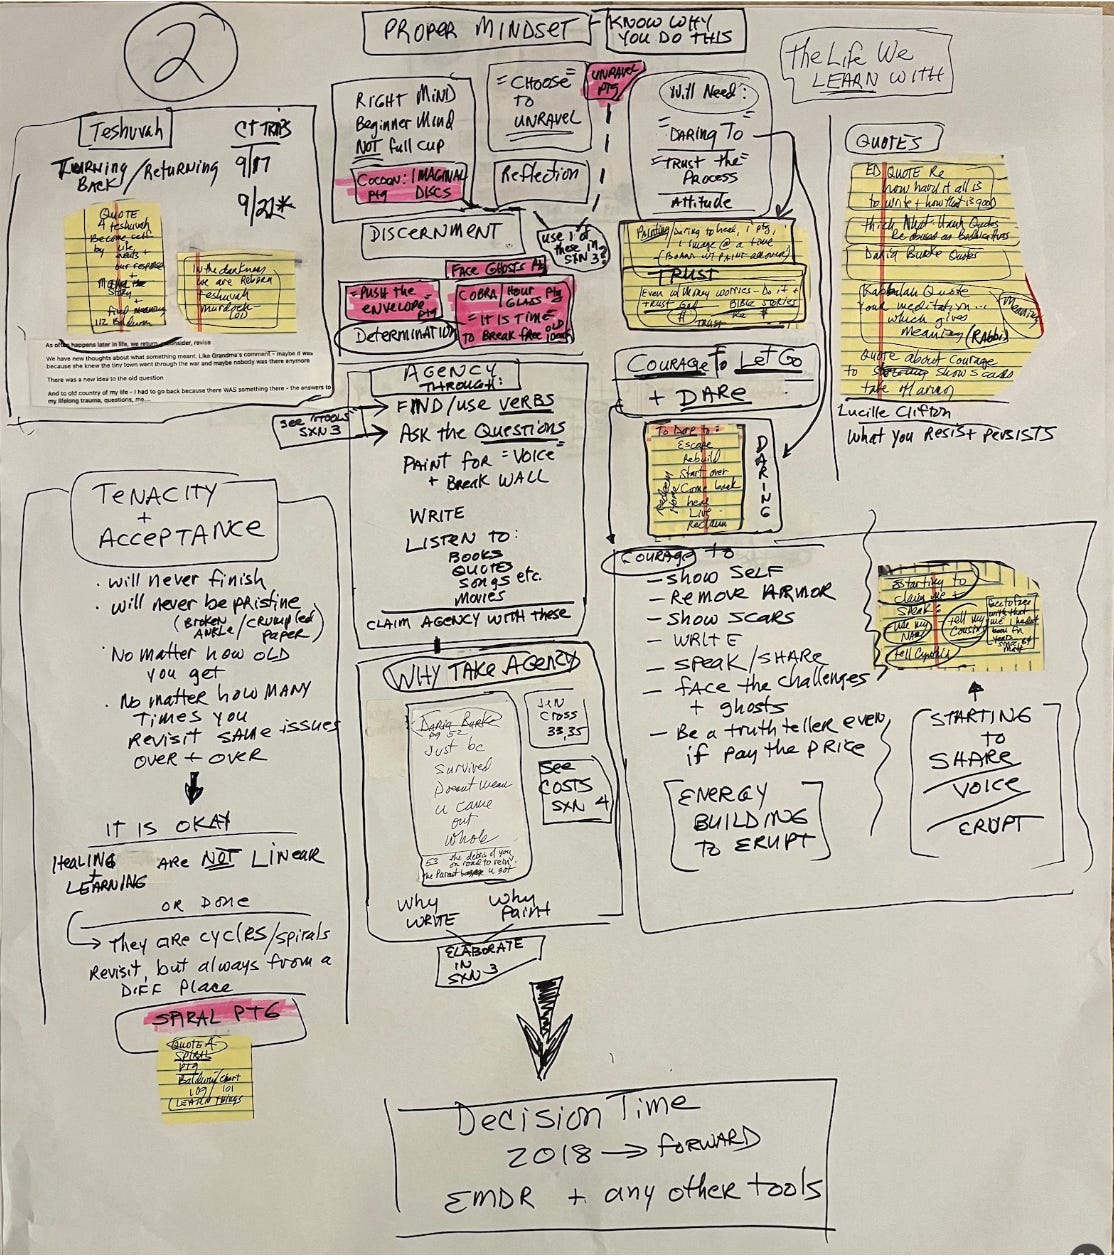 2
PROPER MINDSET
KNOW WHY
YOU DO THIS
the Life We
LEARN WITH
Teshuvah
TURNING
BACK/Returning
CT TRIPS
9/17
9/21*
QUOTE
4 teshuvah
Become
by life,
needs +
our response
+
Story
+
In the darkness
we are Reborn
teshuvah
murdoch
101
As often happens later in life, we return, reconsider, revise
We have new thoughts about what something meant. Like Grandma's comment - maybe it was
because she knew the tiny town went through the war and maybe nobody was there anymore
There was a new idea to the old question
And to old country of my life - I had to go back because there WAS something there - the answers to
my lifelong trauma, questions, me...
RIGHT MIND
Beginner Mind
NOT full cup
COCOON: IMAGINAL
PTG DISCS
"CHOOSE"
TO
UNRAVEL
UNRAVEL
PTG
Reflection
DISCERNMENT
use 1 of
these in
SXN 3?
FACE GHOSTS PTG
"PUSH the
ENVELOPE"
PTG
Determination
COBRA/HOUR PTG
GLASS
"IT IS TIME"
TO BREAK FREE OLD
Will Need:
"DARING TO"
"TRUST the"
PROCESS
Attitude
Painting/Daring to heal, 1 ptg,
1 image @ a time
TRUST
Even w/ money worries - Do it +
trust God BIBLE STORIES
Re $
TRUST
COURAGE To Let Go
+ DARE
To DARE to:
Escape
Rebuild
Start over
Come back
heal
Live
Reclaim
DARING
QUOTES
ED QUOTE Re
how hard it all is
to write + how that is good
Thich Nhat Hanh Quotes
Daria Burke Quotes
Kabbalah Quote
our meditation...
which gives
Meaning (Rabbi)
Quote about Courage
to show scars
take off armor
Lucille Clifton
What you Resist Persists
AGENCY
THROUGH:
SEE TOOLS
SXN 3
FIND/use VERBS
Ask the QUESTIONS
PAINT FOR "VOICE"
+ BREAK WALL
WRITE
LISTEN TO:
BOOKS
QUOTES
SONGS etc.
Movies
CLAIM AGENCY WITH these
TENACITY
+
ACCEPTANCE
· will never finish
· will never be pristine
(BROKEN
ANKLE/CRUMPLED
PAPER)
· No matter how OLD
you get
· No matter how MANY
Times you
Revisit SAME issues
over + over
IT IS OKAY
HEALING
+
LEARNING
ARE NOT LINEAR
OR DONE
They are cycles/spirals
Revisit, but always from a
DIFF Place
SPIRAL PTG
QUOTE 4
SPIRAL
PTG
109 101
LEARN THINGS
WHY TAKE AGENCY
Daria Burke
pg 52
Just bc
survived
Doesnt mean
u came
out
whole
53 the debris of you
JEN
CROSS
33, 35
See
COSTS
SXN 4
Why
WRITE
Why
Paint
ELABORATE
IN
SXN 3
COURAGE to
– SHOW SELF
– REMOVE ARMOR
– SHOW SCARS
– WRITE
– SPEAK/SHARE
– FACE the challenges
+ ghosts
– Be a truth teller even
if pay the price
ENERGY
BUILDING
TO ERUPT
Starting to
claim me +
speak:
use my
NAME
tell my
Cousin
tell Cynthia
STARTING
TO
SHARE
VOICE
ERUPT
Decision Time
2018 → FORWARD
EMDR + any other tools